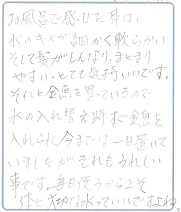 お風呂で感じた事は、
水のキメが細かく軟らかい
そして髪がしんなり、まとまり
やすい、とても気持いいです。
それと金魚を買っているので
水の入れ替え時すぐ金魚を
入れられ今までは一日置いて
いましたがそれもうれしい
事です。毎日使うからこそ
体に大切な水っていいですよね。